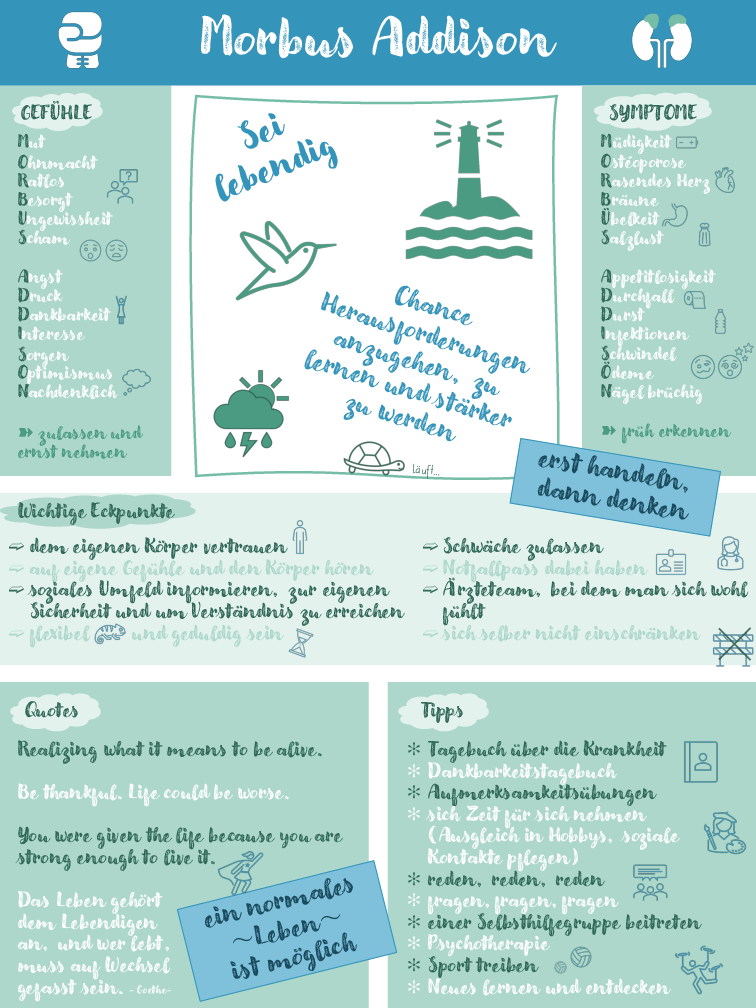 Morbus Addison
GEFÜHLE
Mut
Ohnmacht
Ratlos
Besorgt
Ungewissheit
Scham
Angst
Druck
Dankbarkeit
Interesse
Sorgen
Optimismus
Nachdenklich
zulassen und
ernst nehmen
Sei
lebendig
Chance
Herausforderungen
anzugehen, zu
lernen und stärker
zu werden
läuft...
SYMPTOME
Müdigkeit
Osteoporose
Rasendes Herz
Bräune
Übelkeit
Salzlust
Appetitlosigkeit
Durchfall
Durst
Infektionen
Schwindel
Ödeme
Nägel brüchig
früh erkennen
erst handeln,
dann denken
Wichtige Eckpunkte
dem eigenen Körper vertrauen
auf eigene Gefühle und den Körper hören
soziales Umfeld informieren, zur eigenen
Sicherheit und um Verständnis zu erreichen
flexibel und geduldig sein
Schwäche zulassen
Notfallpass dabei haben
Ärzteteam, bei dem man sich wohl
fühlt
sich selber nicht einschränken
Quotes
Realizing what it means to be alive.
Be thankful. Life could be worse.
You were given the life because you are
strong enough to live it.
Das Leben gehört
dem Lebendigen
an, und wer lebt,
muss auf Wechsel
gefasst sein. -Goethe-
ein normales
~Leben~
ist möglich
Tipps
* Tagebuch über die Krankheit
* Dankbarkeitstagebuch
* Aufmerksamkeitsübungen
* sich Zeit für sich nehmen
(Ausgleich in Hobbys, soziale
Kontakte pflegen)
* reden, reden, reden
* fragen, fragen, fragen
* einer Selbsthilfegruppe beitreten
* Psychotherapie
* Sport treiben
* Neues lernen und entdecken